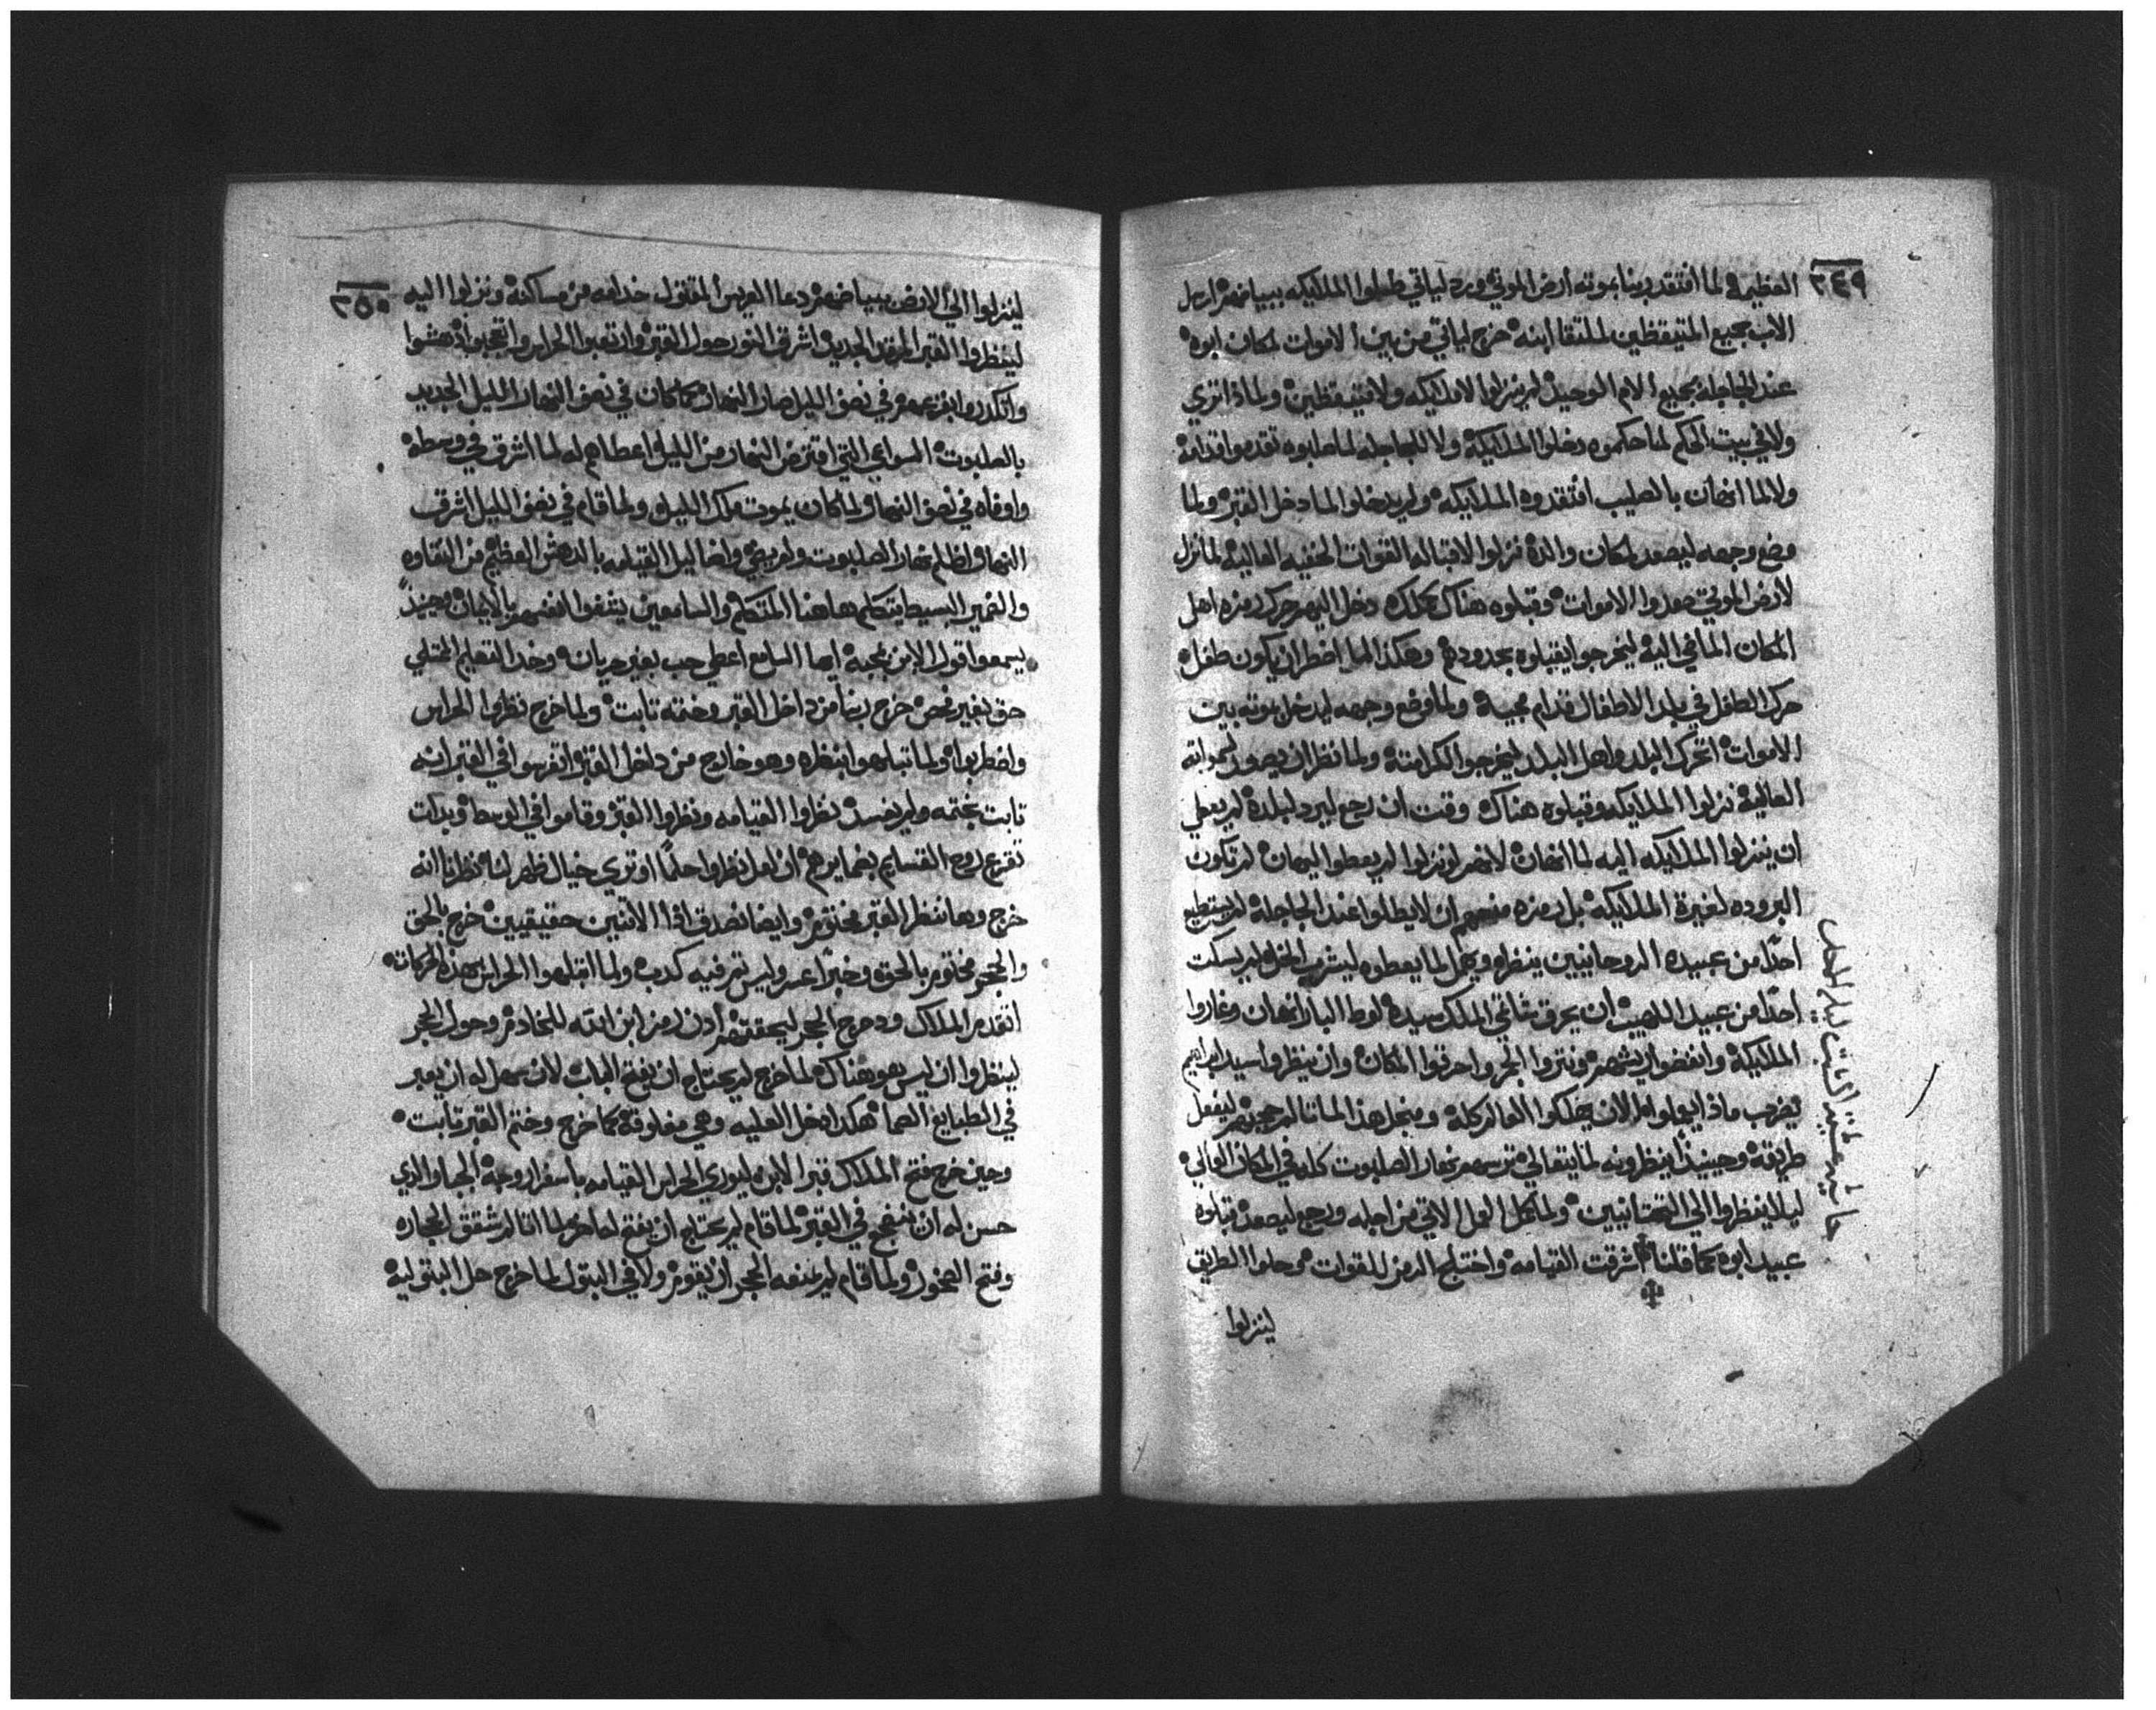 ٣٤٩
العظيم لما افتقد ربنا بموته أرض الموتي ورد لياتي طلعوا الملايكه ببياضهم ارسل
الاب بجميع المتيقظين لملتقا ابنه خرج لياتي من بين الاموات لمكان ابوه
عند الجاجله بجميع الام الوحيد لم ينزلوا لا ملايكه ولا متيقظين ولماذا تري
ولا في بيت الحكم لما حكموه دخلوا الملايكة ولا للجاجله لما صلبوه تقدموا قدامه
ولا لما انهان بالصليب افتقدوه الملايكه ولم يدخلوا لما دخل القبر ولما
وضع وجهه ليصعد لمكان والده نزلوا لاقباله القوات الخفيه العالية لما نزل
لارض الموتي الاموات وقبلوه هناك دخل اليهم حرك رمزه اهل
المكان الماضي اليه ليخرجوا يقبلوه بحدودهم وهكذا لما اضطر ان يكون طفل
حرك الطفل في بلد الاطفال قدام مجيه ولما وضع وجهه ليدخل بموته بيت
الاموات اتحرك البلد واهل البلد ليخرجوا لكرامته ولما نظر ان يصعد لسمواته
العالية نزلوا الملايكه وقبلوه هناك وقت ان رجع ليرد لبلده لم يعطي
ان ينزلوا الملايكه اليه لما انهان لانهم لو نزلوا لم يعطوا اليهان لم تكون
البروده لغيرة الملايكة بل رمزه منعهم ان لا يطلوا عند الجاجلة لم يستطيع
احدًا من عبيده الروحانيين ينظره ويحمل لما يعطوه ليشرب الخل لم يسكت
احدًا من عبيد اللهيب أن يحرق شاتمي الملك سيده لوط البار انهان وغاروا
الملايكة وانغضوا ونتروا الجمر واحرقوا المكان وان ينظروا سيد ابراهيم
يضرب ماذا يعملوا الا ان يهلكوا العالم كله ومنجل هذا الماتا لم ليفعل
طريقه وحينيذ ينظرونه لما يتعالي نهار الصلبوت كله في المكان العالي
ليلا ينظروا الي التحتانيين ولما كمل العمل الاتي من اجله ورجع ليصعد قبلوه
عبيد ابوه كما قلنا اشرقت القيامه واختلج الرمز للقوات وحلوا الطريق
لينزلوا
٣٥٠
لينزلوا الي الارض ببياضهم دعا العريس المقتول خدامه من مساكنه ونزلوا اليه
لينظروا القبر المرقد الجديد اشرق النور حول القبر وارتعبوا الحراس واتعجبوا اندهشوا
واتكدروا بفزعهم في نصف الليل صار النهار كما كان في نصف النهار الليل الجديد
بالصلبوت السواعي التي اقترض النهار من الليل اعطاهم له لما اشرق في وسطه
واوفاه في نصف النهار لما كان يموت ملك الليل ولما قام في نصف الليل اشرق
النهار اظلم نهار الصلبوت ولم يضي واضا ليل القيامه بالدهش العظيم من النقاوه
والضمير البسيط يتكلم هاهنا المتكلم والسامعين يشفوا انفسهم بالايمان وحينيذ
يسمعوا قول الابن بمحبة ايها السامع اعطي حب بغير جريان وخد التعليم الممتلي
حق بغير فحص خرج ربنا من داخل القبر وختمه تابت ولما خرج نظروا الحراس
واضطربوا ولما تباهوا بنظره وهو خارج من داخل القبر اتفرسوا في القبر انه
تابت بختمه ولم يفسد نظروا القيامه ونظروا القبر وقاموا في الوسط وبدات
تقرع روح القتسايم بضمايرهم ان لعل نظروا حلمًا او تري خيال ظهر لنا نظرنا انه
خرج وها ننظر القبر مختوم وايضا نصدق ان الاتنين حقيقيين خرج بالحق
والحجر مختوم بالحق وخبرًا عسر وليس تم فيه كدب ولما اتبلهوا الحراس بهذه الحركات
اتقدم الملاك ودحرج الحجر ليحققهم أدن رمز ابن الله للخادم وحول الحجر
لينظروا ان ليس هو هناك لما خرج لم يحتاج ان يفتح الباب لان سهل له ان يعبر
في الطبايع الصما هكدا دخل العليه وهي مغلوقة كما خرج وختم القبر تابت
وحين خرج فتح الملاك قبر الابن ليوري الحراس القيامه باسفار وجه الجبار الدي
حسن له ان ينضجع في القبر لما قام لم يحتاج ان يفتح لما اتالم شقق الحجاره
وفتح الصخور ولما قام لم يمنعه الحجر ان يقوم ولا في البتول لما خرج حل البتولية